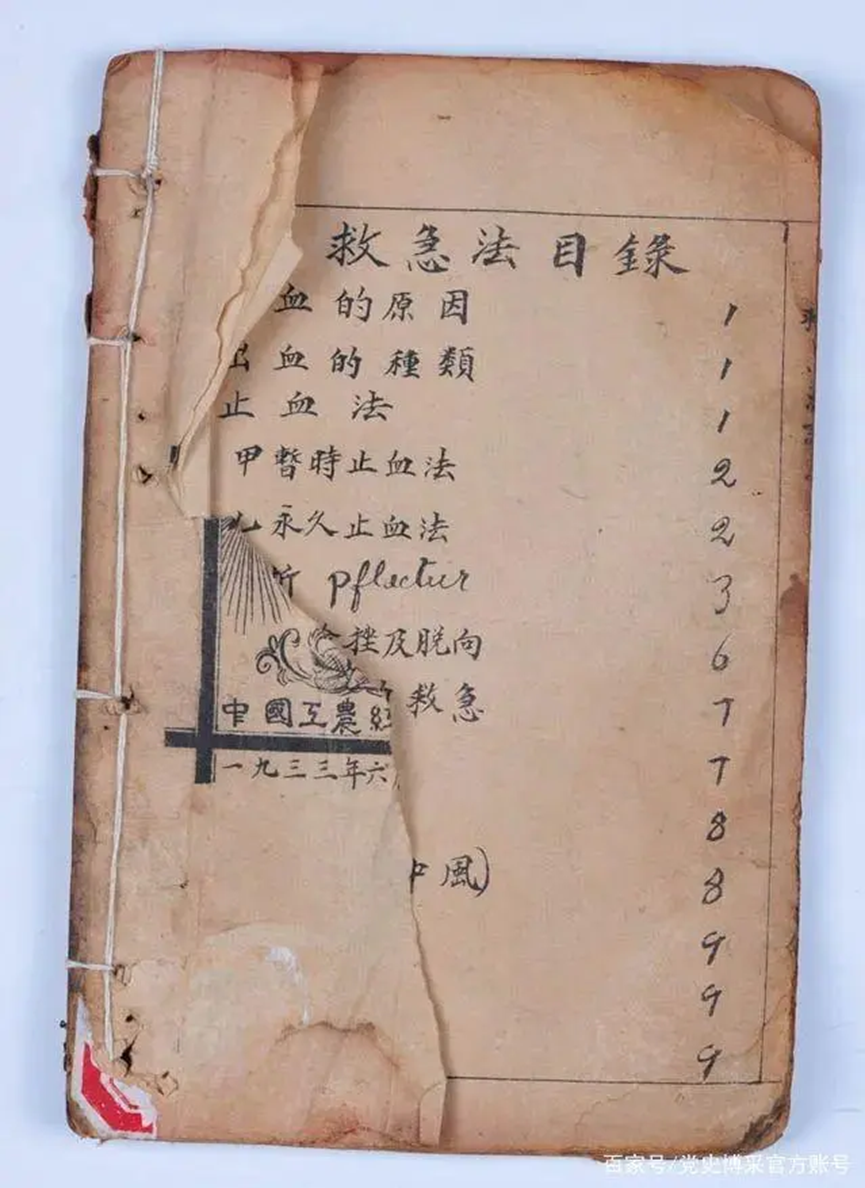 救急法目錄
血的原因 1
出血的種類 1
止血法 1
甲暫時止血法 2
乙永久止血法 2
pflectur 3
挫及脱向 6
救急 7
7
8
中風) 8
9
9
9
中國工農紅
一九三三年六月
百家号/党史博采官方账号